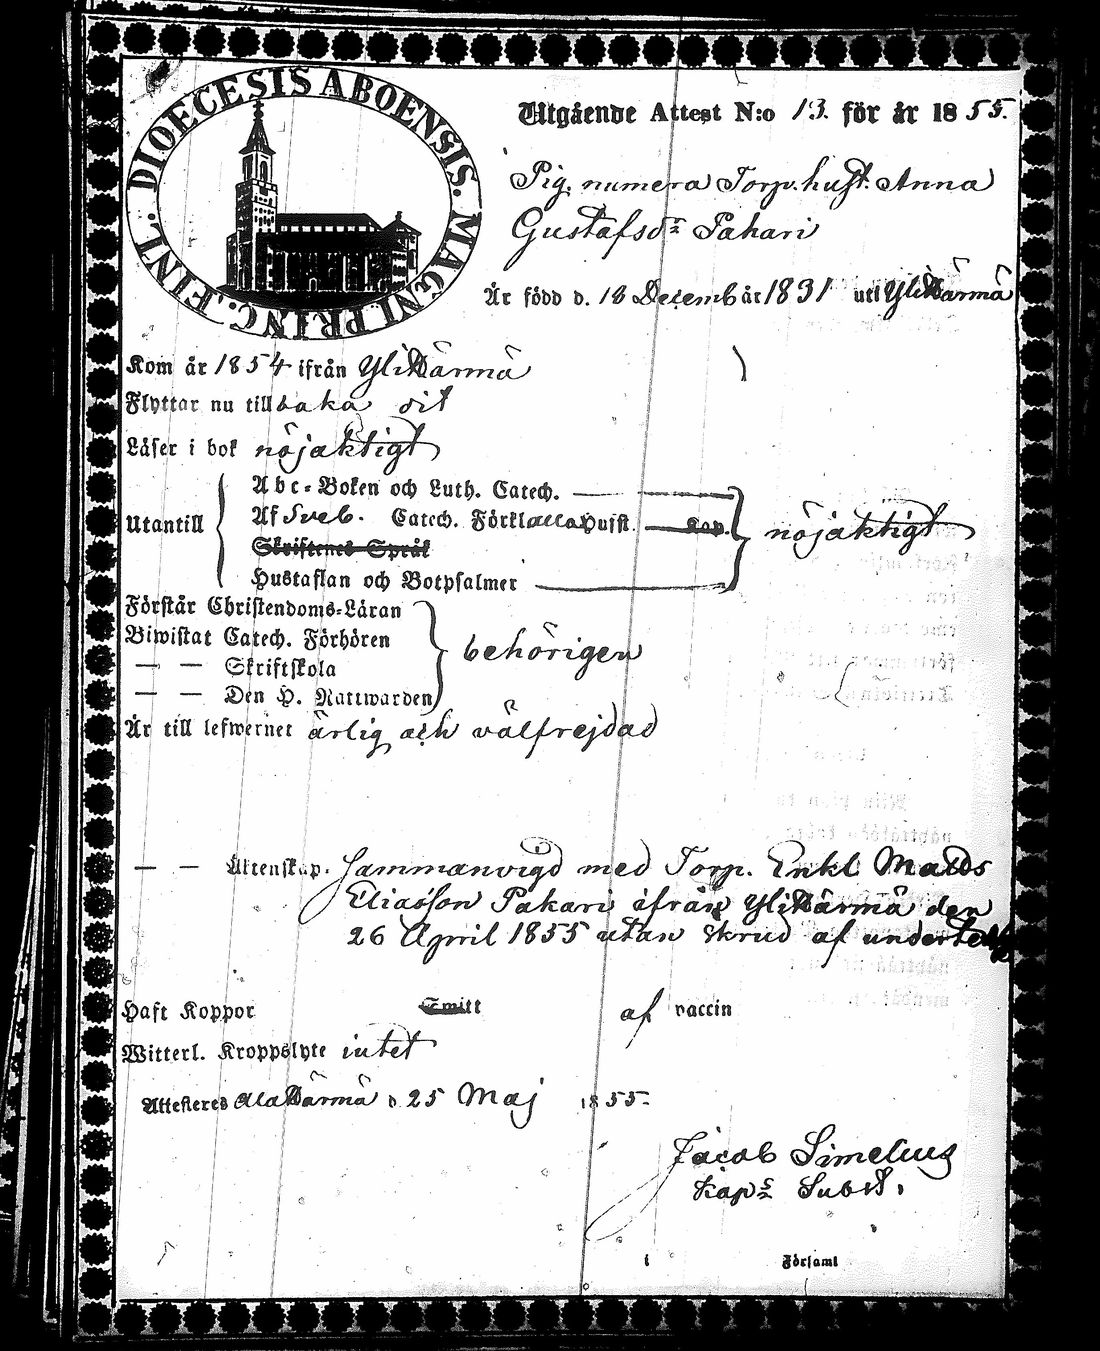 DIOECESIS ABOENSIS. MAGNI PRINC. FINL.
Utgående Attest N:o 13. för år 1855.
Pig. numera Torp. hust. Anna
Gustafsdr Pakari
Är född d. 18 Decemb år 1831 uti YliKärmä
Kom år 1854 ifrån YliKärmä
Flyttar nu tillbaka dit
Läser i bok nöjaktigt
Utantill
Abc-Boken och Luth. Catech.
Af Sveb. Catech. Förkl alla Husst. Kap.
Skriftenes Språk
Hustaflan och Botpsalmer
nöjaktigt
Förstår Christendoms-Läran
Biwistat Catech. Förhören
— — Skriftskola
— — Den H. Nattwarden
behörigen
Är till lefwernet ärlig och välfrejdad
— — Äktenskap. Sammanvigd med Torp. Enkl Matts
Eliasson Pakari ifrån YliKärmä den
26 April 1855 utan skrud af
Haft Koppor Smitt af vaccin
Witterl. Kroppslyte intet
Attesteres AlaKärmä d 25 Maj 1855.
Jacob Simelius
Kapns Subst.
i Församl